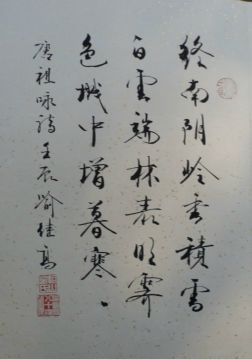 終南阴岭秀積雪
白雲端林表明霽
色城中增暮寒
唐祖咏詩壬辰